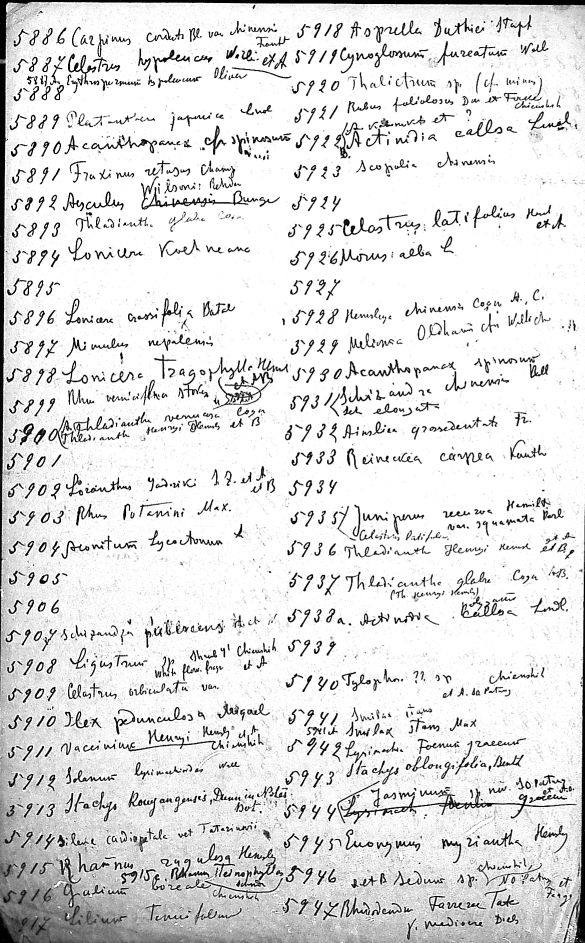 5886 Carpinus cordata Bl var chinensis
Franch
5887 Celastrus hypoleucus Warb. et A
5887 Erythrospermum hypoleucum Oliver
5888
5889 Platanthera japonica Lindl
5890 Acanthopanax cfr spinosum
5891 Fraxinus retusa Champ
Wilsonii Rehder
5892 Aesculus chinensis Bunge
5893 Thladiantha glabra Cogn
5894 Lonicera Koehneana
5895
5896 Lonicera crassifolia Batal
5897 Mimulus nepalensis
5898 Lonicera Tragophylla Hemsl
et B
5899 Rhus verniciflua Stokes
5900 A Thladiantha Cogn
Thladiantha Henryi Hemsl et B
5901
5902 Loranthus Yadoriki S. Z. et A
et B
5903 Rhus Potanini Max.
5904 Aconitum Lycoctonum L
5905
5906
5907 Schizandra pubescens H. et
5908 Ligustrum ??
white flow. et A
5909 Celastrus orbiculata var.
5910 Ilex pedunculosa Miquel
5911 Vaccinium Henryi Hemsl et A
Chienshih
5912 Solanum lysimachioides Wall
5913 Stachys Kouyangensis Dunn in Notes
Bot.
5914 Silene cardiopetala vel Tatarinowii
5915 Rhamnus rugulosa Hemsly
5915 B. Rhamnus iteinophylla
5916 Galium boreale Chienshih
5917 Lilium tenuifolium
5918 Asprella Duthiei Stapf
5919 Cynoglossum furcatum Wall
5920 Thalictrum sp. (cf. minus)
5921 Rubus foliolosus Don et Focke
Chienshih
5922 A et ?
B Actinidia callosa Lindl.
5923 Scopolia chinensis
5924
5925 Celastrus latifolius Hemsl
et A
5926 Morus alba L
5927
5928 Hemsleya chinensis Cogn A, C.
5929 Meliosma Oldhami cfr
5930 Acanthopanax spinosum
5931 Schizandra chinensis Baill
elongata
5932 Ainsliea grossedentata Fr.
5933 Reineckea carnea Kunth
5934
5935 Juniperus recurva Hamilt
var. squamata Parl
Celastrus latifolius
5936 Thladiantha Henryi Hemsl et A
et B
5937 Thladiantha glabra Cogn A+B.
(Th Henryi Hemsl)
5938a. Actinidia callosa Lindl.
5939
5940 Tylophora ?? sp Chienshih
et A. de Patung
5941 Smilax
5941 et Smilax stans Max
5942 Lysimachia Foenum graecum
5943 Stachys oblongifolia, Benth
5944 Jasminum sp. nov. SO Patung
Lysimach. graecum
5945 Evonymus myriantha Hemsly
5946 et B Sedum sp. Chienshih
NO Patung et
5947 Rhododendron Fargesii
f. mediocre Diels